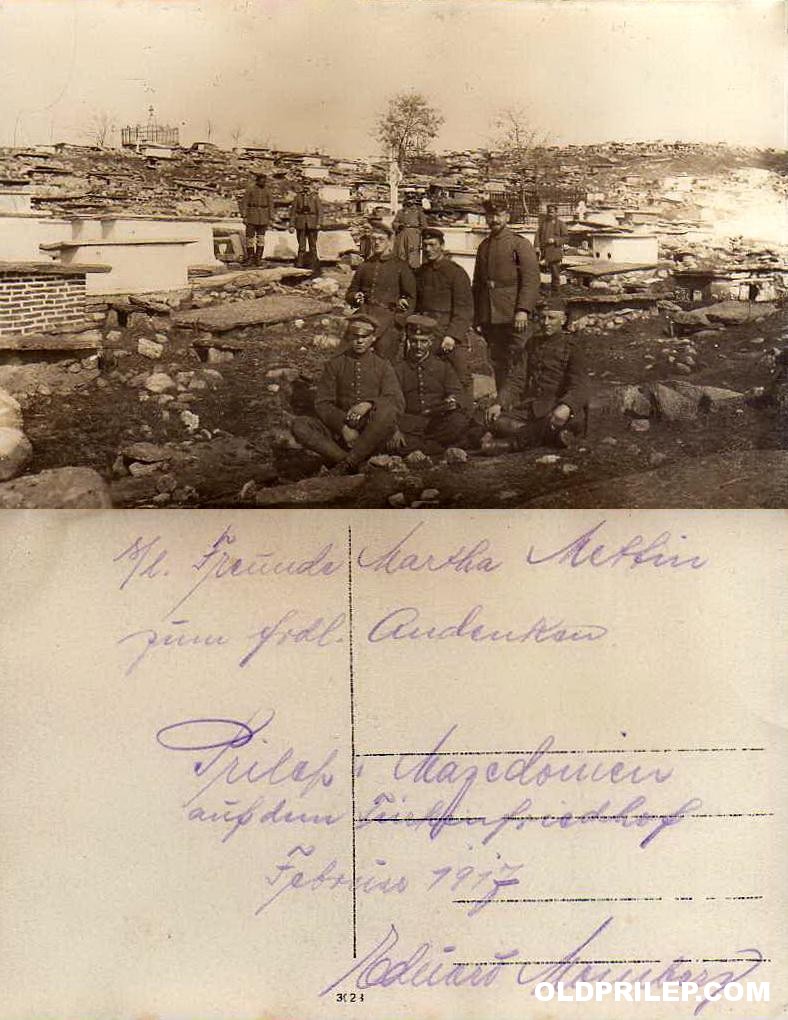 Freunde Martha Mettin
zum frdl. Andenken
Prilep i Mazedonien
auf dem Türkenfriedhof
Februar 1917
Eduard
3023
OLDPRILEP.COM